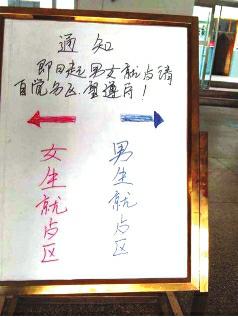 通知
即日起男女就占请
自觉分区.望遵守!
女生就占区
男生就占区